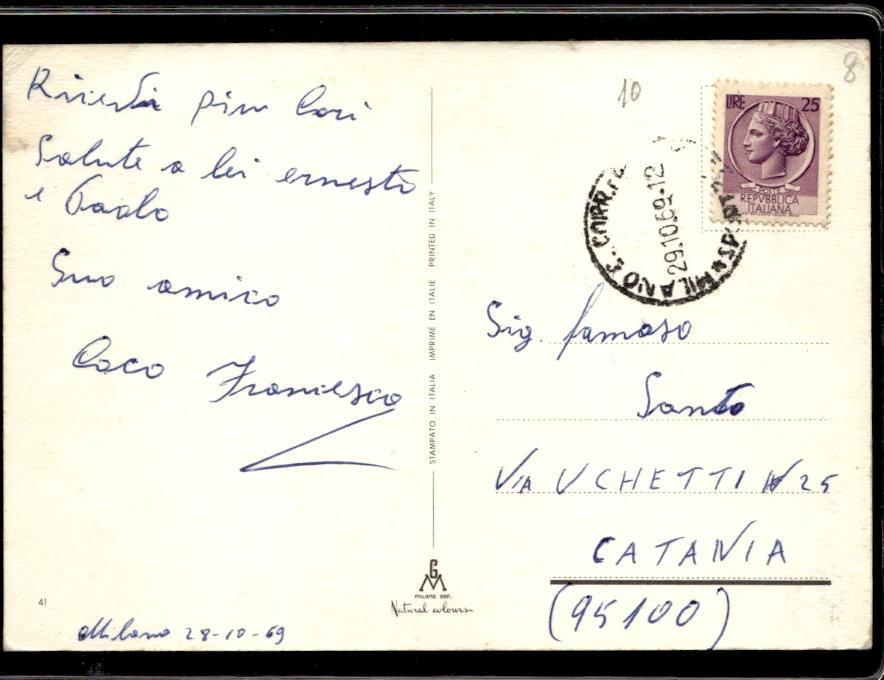 Ricevi piu Cari
Salute a lei ernesto
e Paolo
Suo amico
Caco Francesco
Milano 28-10-69
41
STAMPATO IN ITALIA IMPRIMÉ EN ITALIE PRINTED IN ITALY
GM
MILANO DEP.
Natural colours
10
8
LIRE 25
POSTE
REPVBBLICA
ITALIANA
MILANO
29.10.69-12
Sig. famoso
Santo
VIA UCHETTI N 25
CATANIA
(95100)